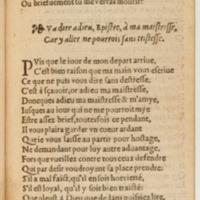 Ou briefuement tu me verras mourir.
Va dire adieu, Epistre, à ma maistresse,
Car y aller ne pourrois sans tristesse.
PVis que le iour de mon depart arriue,
C'est bien raison que ma main vous escriue
Ce que ne puis vous dire sans destresse.
C'est à sçauoir, or adieu ma maistresse:
Doncques adieu ma maistresse & m'amye,
Iusques au iour qui ne me pourroit mye
Estre assez brief, toutesfois ce pendant,
Il vous plaira garder vn cueur ardant
Que ie vous laisse au partir pour hostage,
Ne demandant pour luy autre aduantage,
Fors que vueillez contre tous ceux defendre
Qui par desir voudroyent sa place prendre:
S'il a mal faict, qu'il en soit hors ietté,
S'il est loyal, qu'il y soit bien traicté: